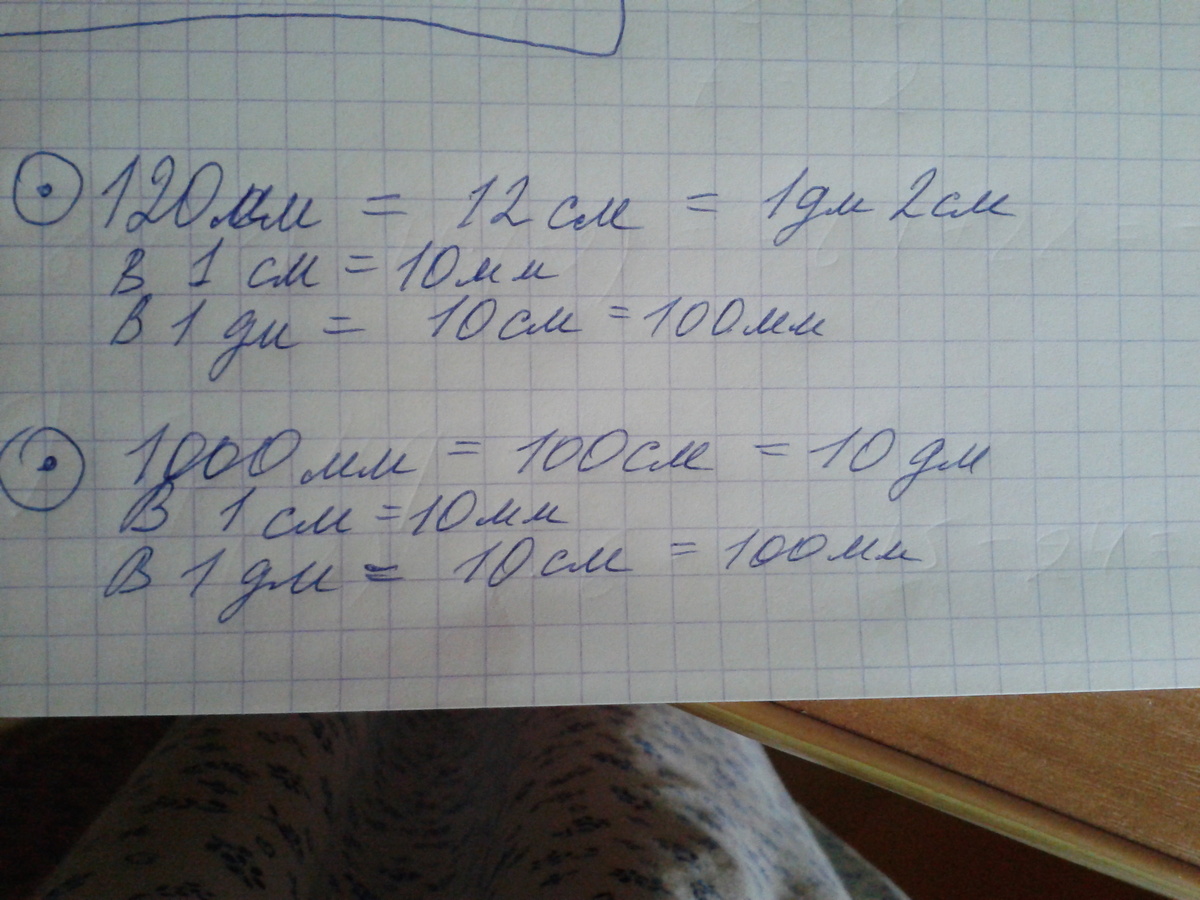 120мм = 12 см = 1дм 2см
В 1 см = 10мм
В 1 дм = 10см = 100мм
1000мм = 100см = 10 дм
В 1 см = 10мм
В 1 дм = 10см = 100мм